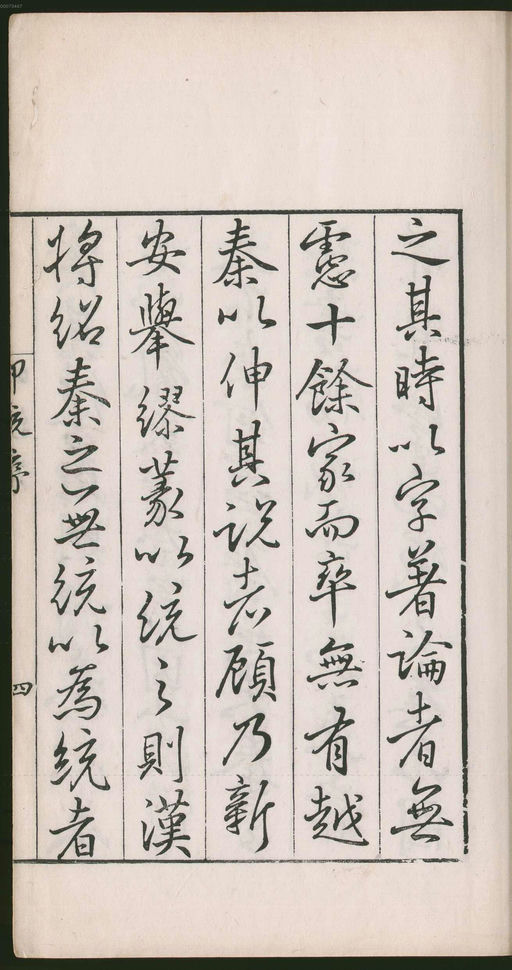 之其時以字著論者無
慮十餘家而卒無有越
秦以伸其説者顧乃新
安舉繆篆以統之則漢
將紹秦之無統以爲統者
印統序
四
00073447